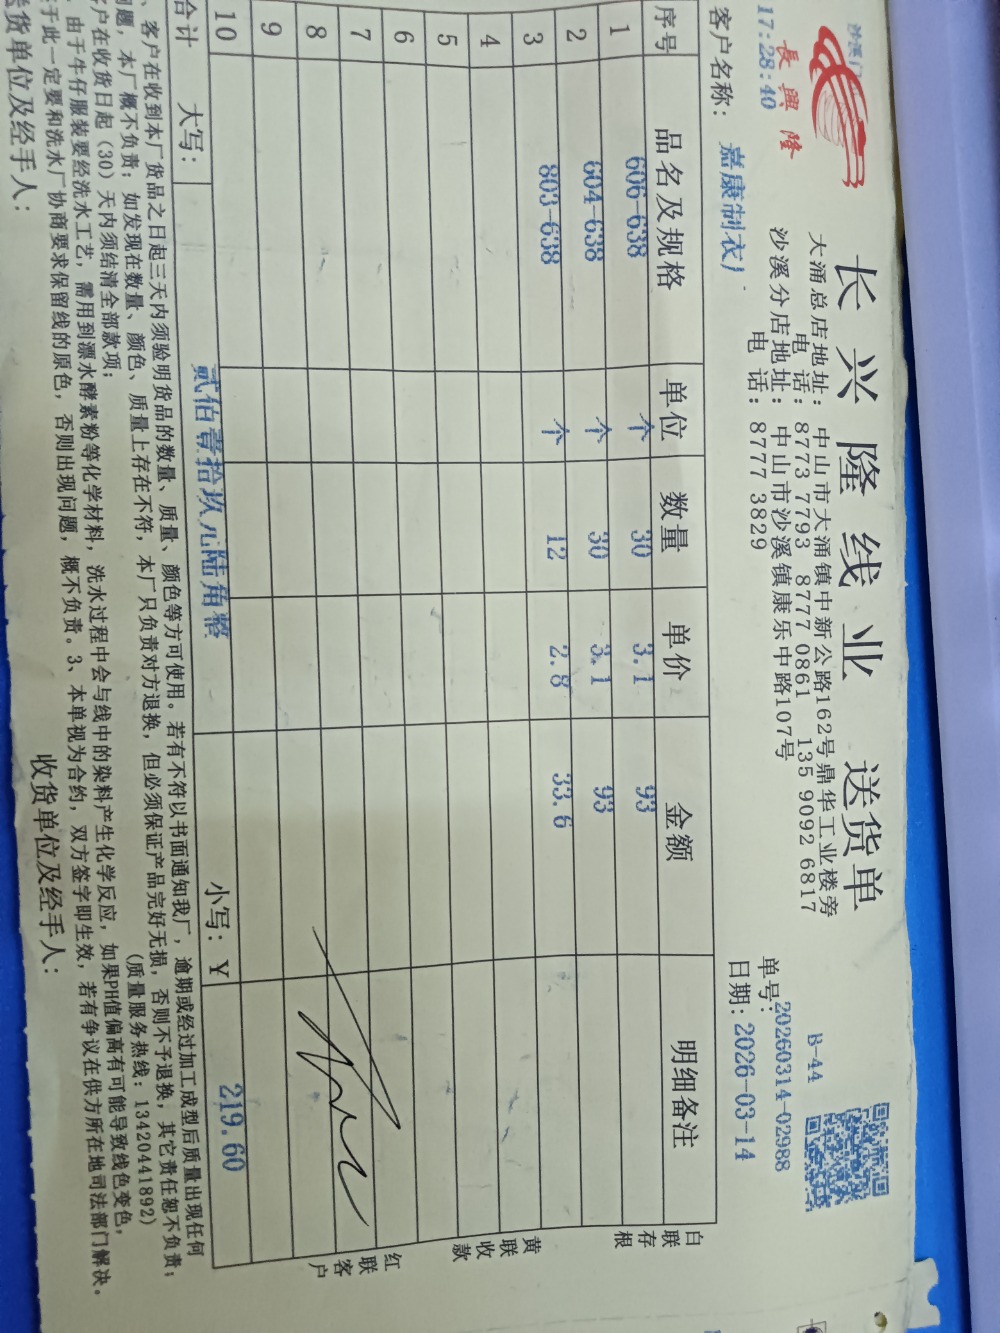 長興隆
17:28:40
长兴隆线业 送货单
B-44
大涌总店地址：中山市大涌镇中新公路162号鼎华工业楼旁
电 话：8773 7793 8777 0861 135 9092 6817
沙溪分店地址：中山市沙溪镇康乐中路107号
电 话：8777 3829
单号：20260314-02988
客户名称：嘉康制衣厂
日期：2026-03-14
序号 品名及规格 单位 数量 单价 金额 明细备注
1 606-638 个 30 3.1 93
2 604-638 个 30 3.1 93
3 803-638 个 12 2.8 33.6
4
5
6
7
8
9
10
合计 大写： 贰佰壹拾玖元陆角整 小写：Y 219.60
白联存根
黄联收款
红联客户
、客户在收到本厂货品之日起三天内须验明货品的数量、质量、颜色等方可使用。若有不符以书面通知我厂，逾期或经过加工成型后质量出现任何
问题，本厂概不负责；如发现在数量、颜色、质量上存在不符，本厂只负责对方退换，但必须保证产品完好无损，否则不予退换，其它责任恕不负责；
客户在收货日起（30）天内须结清全部款项； （质量服务热线：13420441892）
由于牛仔服装要经洗水工艺，需用到漂水酵素粉等化学材料，洗水过程中会与线中的染料产生化学反应，如果PH值偏高有可能导致线色变色，
于此一定要和洗水厂协商要求保留线的原色，否则出现问题，概不负责。3、本单视为合约，双方签字即生效，若有争议在供方所在地司法部门解决。
送货单位及经手人： 收货单位及经手人：